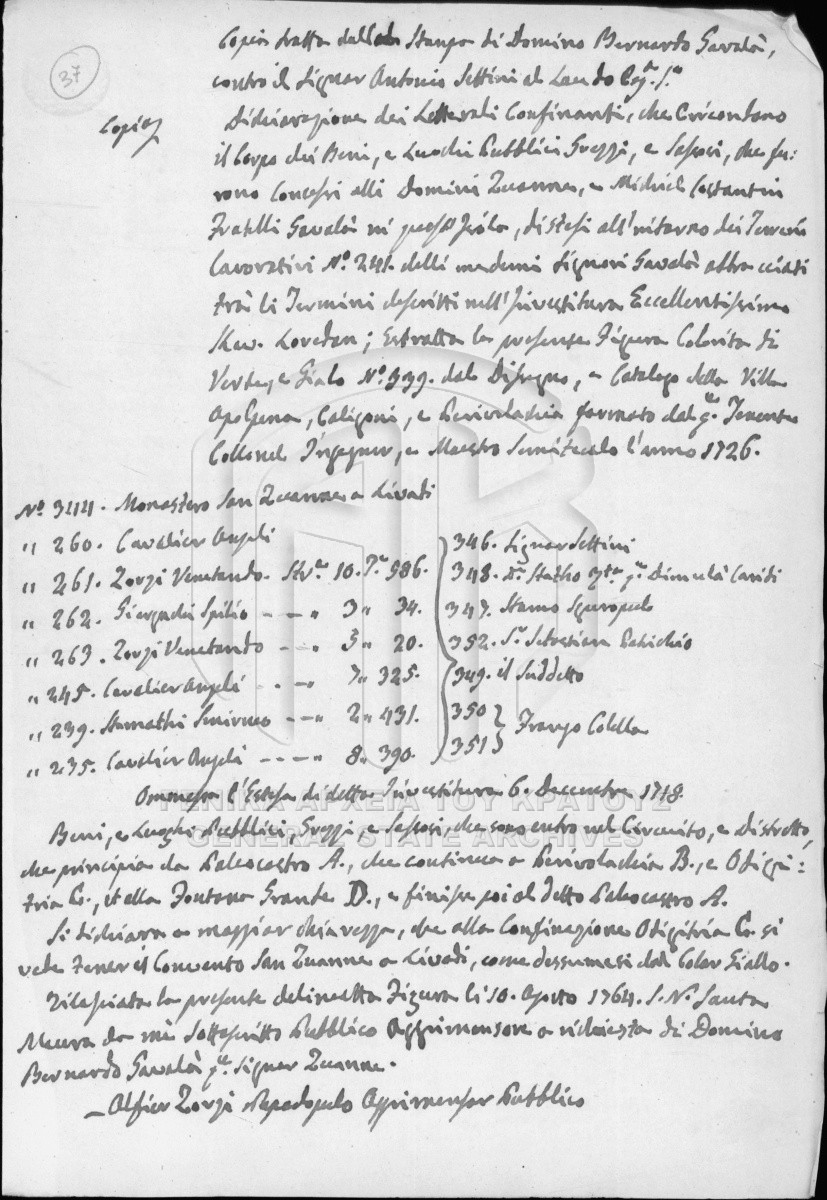 37
Copia tratta dalla Stampa di Domino Bernardo Gavalà,
contro il Signor Antonio Settini al Laudo
Copia
Dichiarazione dei Letterali Confinanti, che Circondano
il Corpo dei Beni, e Luochi Pubblici Grezzi, e Sassosi, che fu:
rono Concessi alli Domini Zuanne, e Michiel Costantin
Fratelli Gavalà in quest' Isola, distesi all'intorno dei Terreni
Lavorativi Nº. 241. delli medemi Signori Gavalà abbracciati
trà li Termini descritti nell'Investitura Eccellentissimo
Loredan; Estratta la presente Figura Colorita di
Verde, e Gialo Nº. 339. dal Disegno, e Catalogo della Villa
Apolpena, Caligoni, e Perivolachia formato dal q.m Tenente
Collonel Ingegner, e Maestro Semitecolo l'anno 1726.
Nº 344. Monastero San Zuanne a Livadi
" 260. Cavalier Angeli
" 261. Zorzi Venetando. 10. 586.
" 262. Spilio - - - " 3 " 34.
" 263. Zorzi Venetando - - " 5 " 20.
" 245. Cavalier Angeli - - " 7 " 325.
" 239. Stamathi - - " 2 " 431.
" 235. Cavalier Angeli - - - - " 8. 390.
346. Signor Settini
348. Statho Dimulà Caridi
347. Stamo Sguropulo
352. Sr. Sebastian
349. il Suddetto
350
351 } Franzo Colella
l'Estesa di detta Investitura 6. Decembre 1718.
ΓΕΝΙΚΑ ΑΡΧΕΙΑ ΤΟΥ ΚΡΑΤΟΥΣ
GENERAL STATE ARCHIVES
Beni, e Luoghi Pubblici, Grezzi, e Sassosi, che sono entro nel Circuito, e Distretto,
che principia da Paleocastro A., che continua a Perivolachia B., e Odigi:
tria C., et alla Fontana Grande D., e finisse poi al detto Paleocastro A.
Si dichiara a maggior chiarezza, che alla Confinazione Odigitria C. si
vede tener il Convento San Zuanne a Livadi, come dessumesi dal Color Giallo.
Rilasciata la presente delineatta Figura li 10. Agosto 1764. S. N. Santa
Maura da mè Sottoscritto Pubblico Aggrimensore a richiesta di Domino
Bernardo Gavalà q.m Signor Zuanne.
– Alfier Zorzi Papadopulo Aggrimensor Pubblico